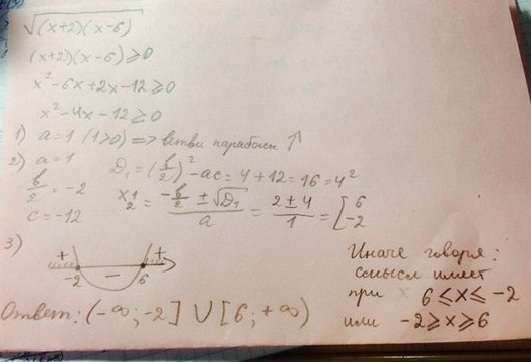 √(x+2)(x-6)
(x+2)(x-6)≥0
x²-6x+2x-12≥0
x²-4x-12≥0
1) a=1 (1>0) => ветви параболы ↑
2) a=1
b/2=-2
c=-12
D₁=(b/2)²-ac=4+12=16=4²
x₁,₂=(-b/2±√D₁)/a=(2±4)/1=[6 -2
3)
+ - +
-2 6
Ответ: (-∞;-2]∪[6;+∞)
Иначе говоря:
Смысл имеет
при x 6≤x≤-2
или -2≥x≥6